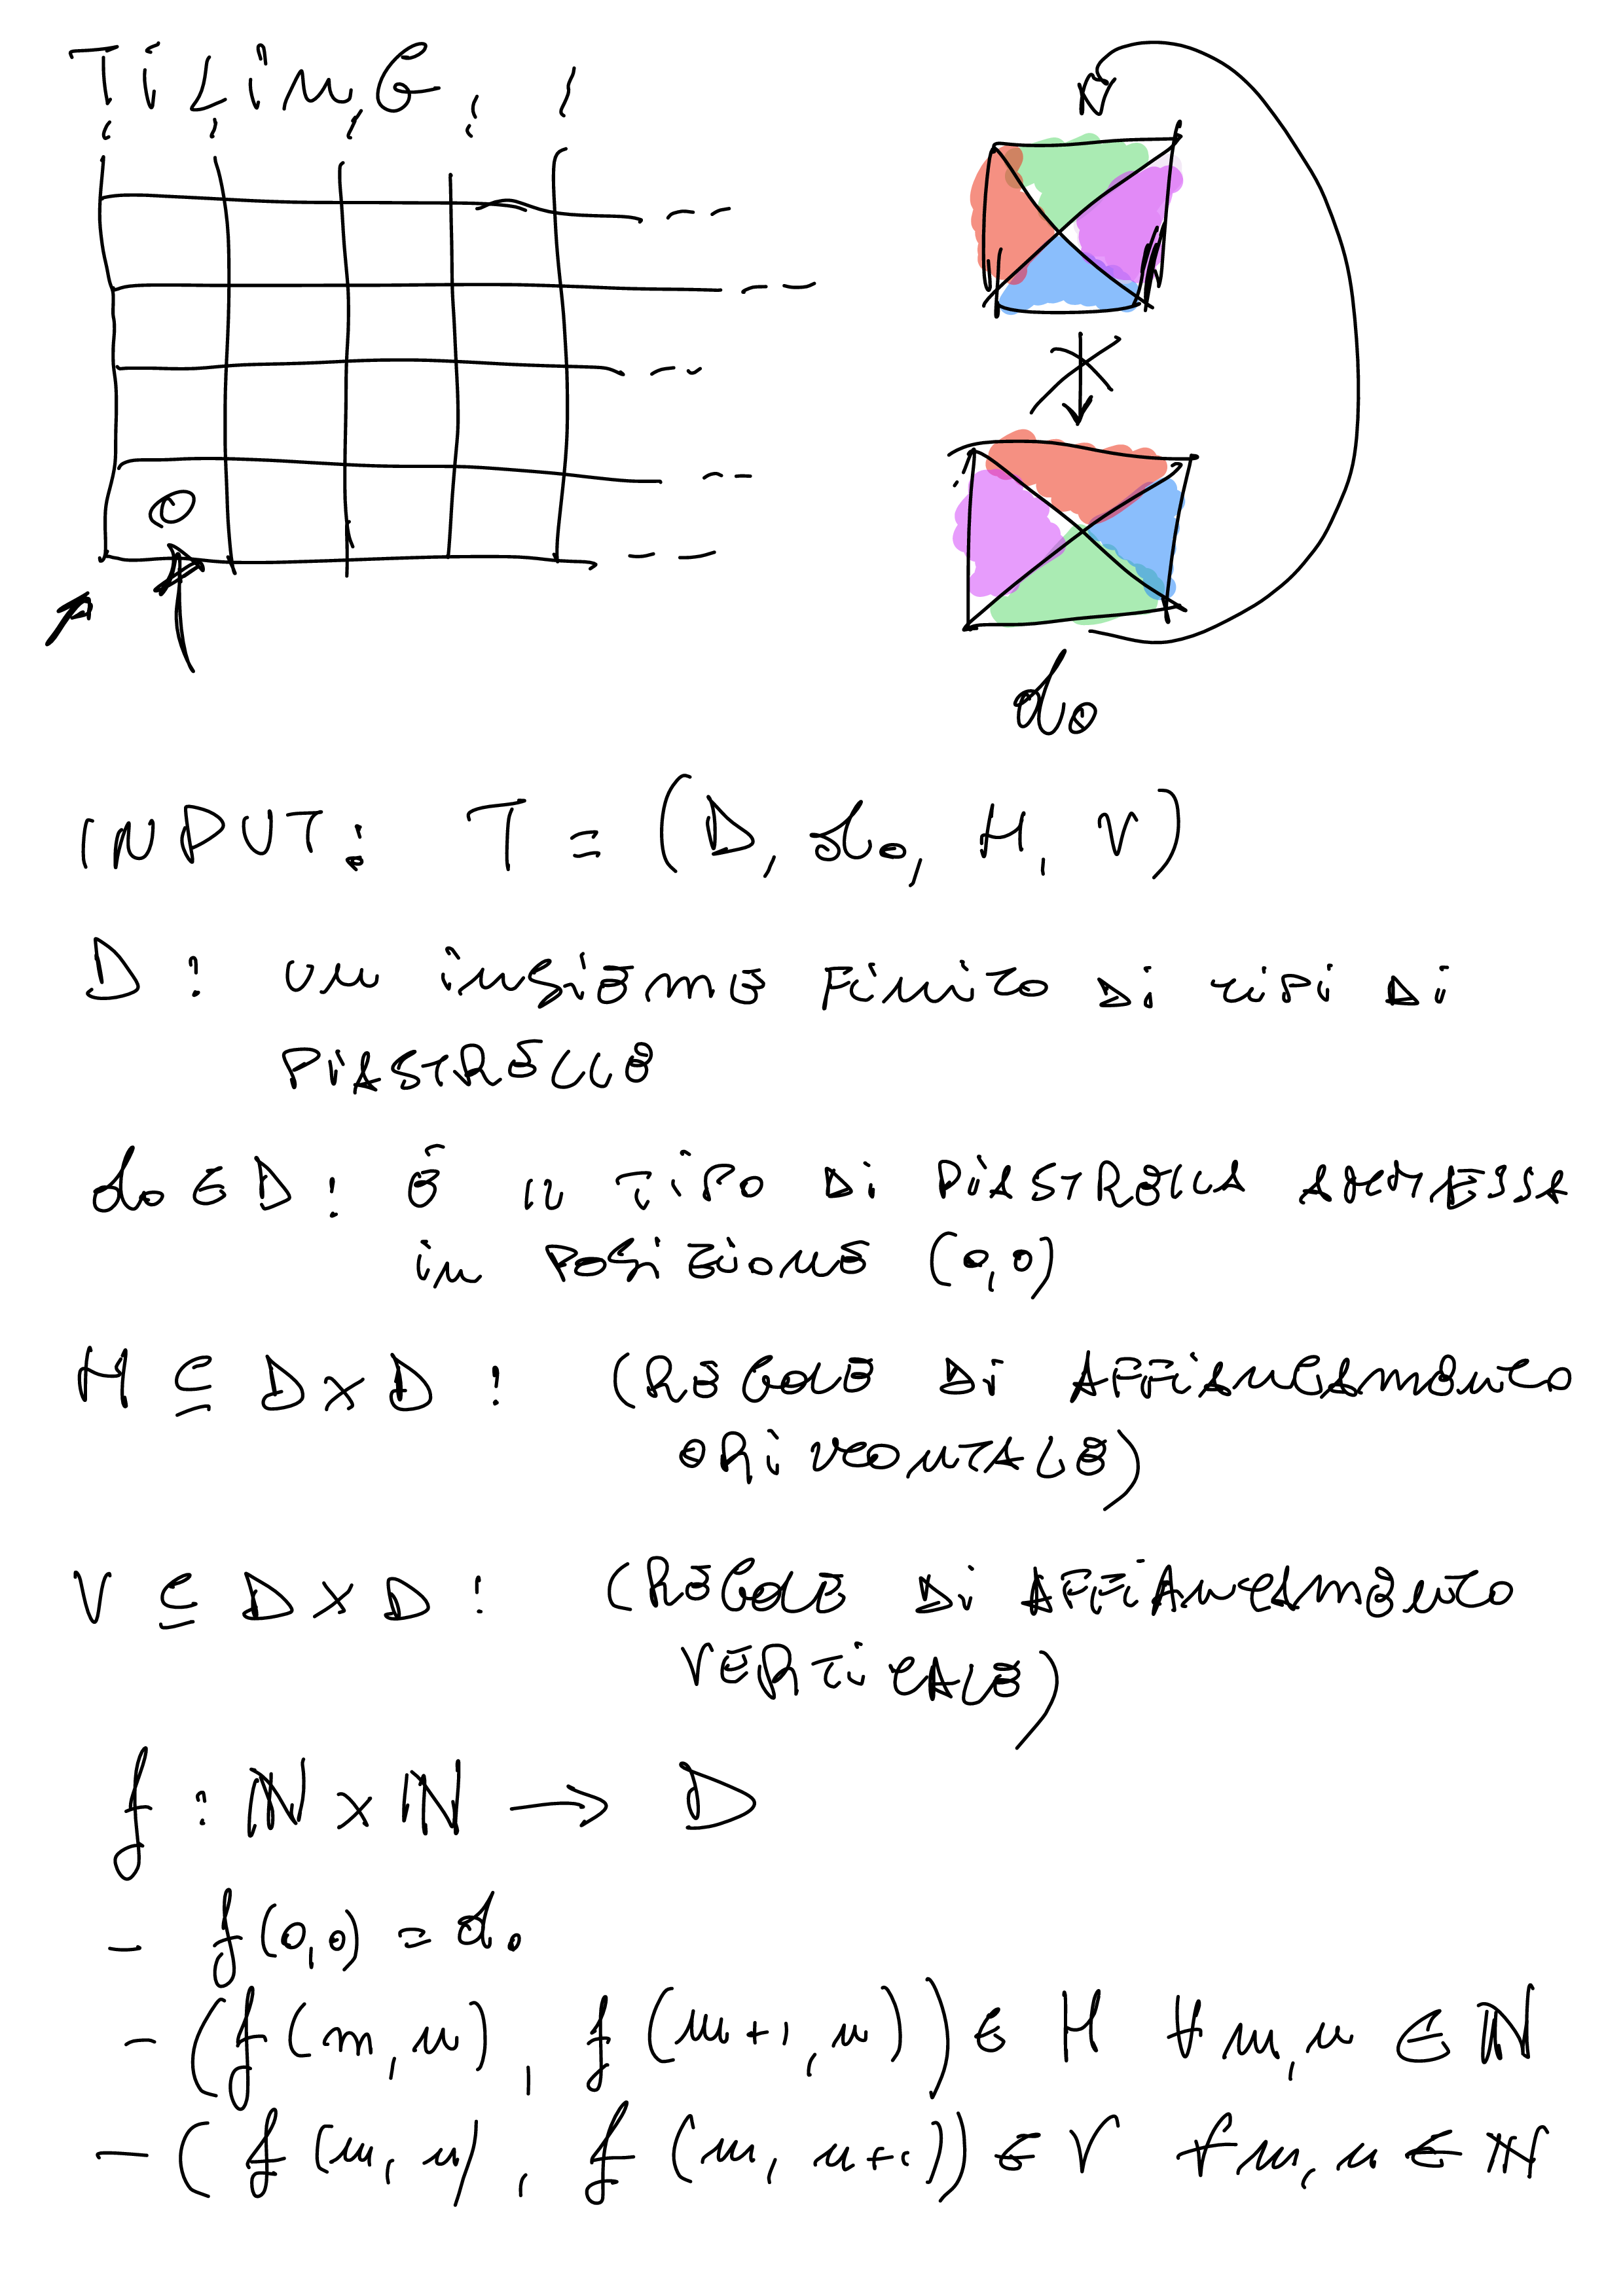 TILING
N
0
d₀
INPUT: T = (D, d₀, H, V)
D : un insieme finito di tipi di
PIASTRELLE
d₀ ∈ D : È il tipo di piastrella ammessa
in posizione (0,0)
H ⊆ D × D : (Regole di affiancamento
orizzontale)
V ⊆ D × D : (Regole di affiancamento
verticale)
f : ℕ × ℕ → D
- f(0,0) = d₀
- (f(m,n), f(m+1,n)) ∈ H ∀m,n ∈ ℕ
- (f(m,n), f(m,n+1)) ∈ V ∀m,n ∈ ℕ